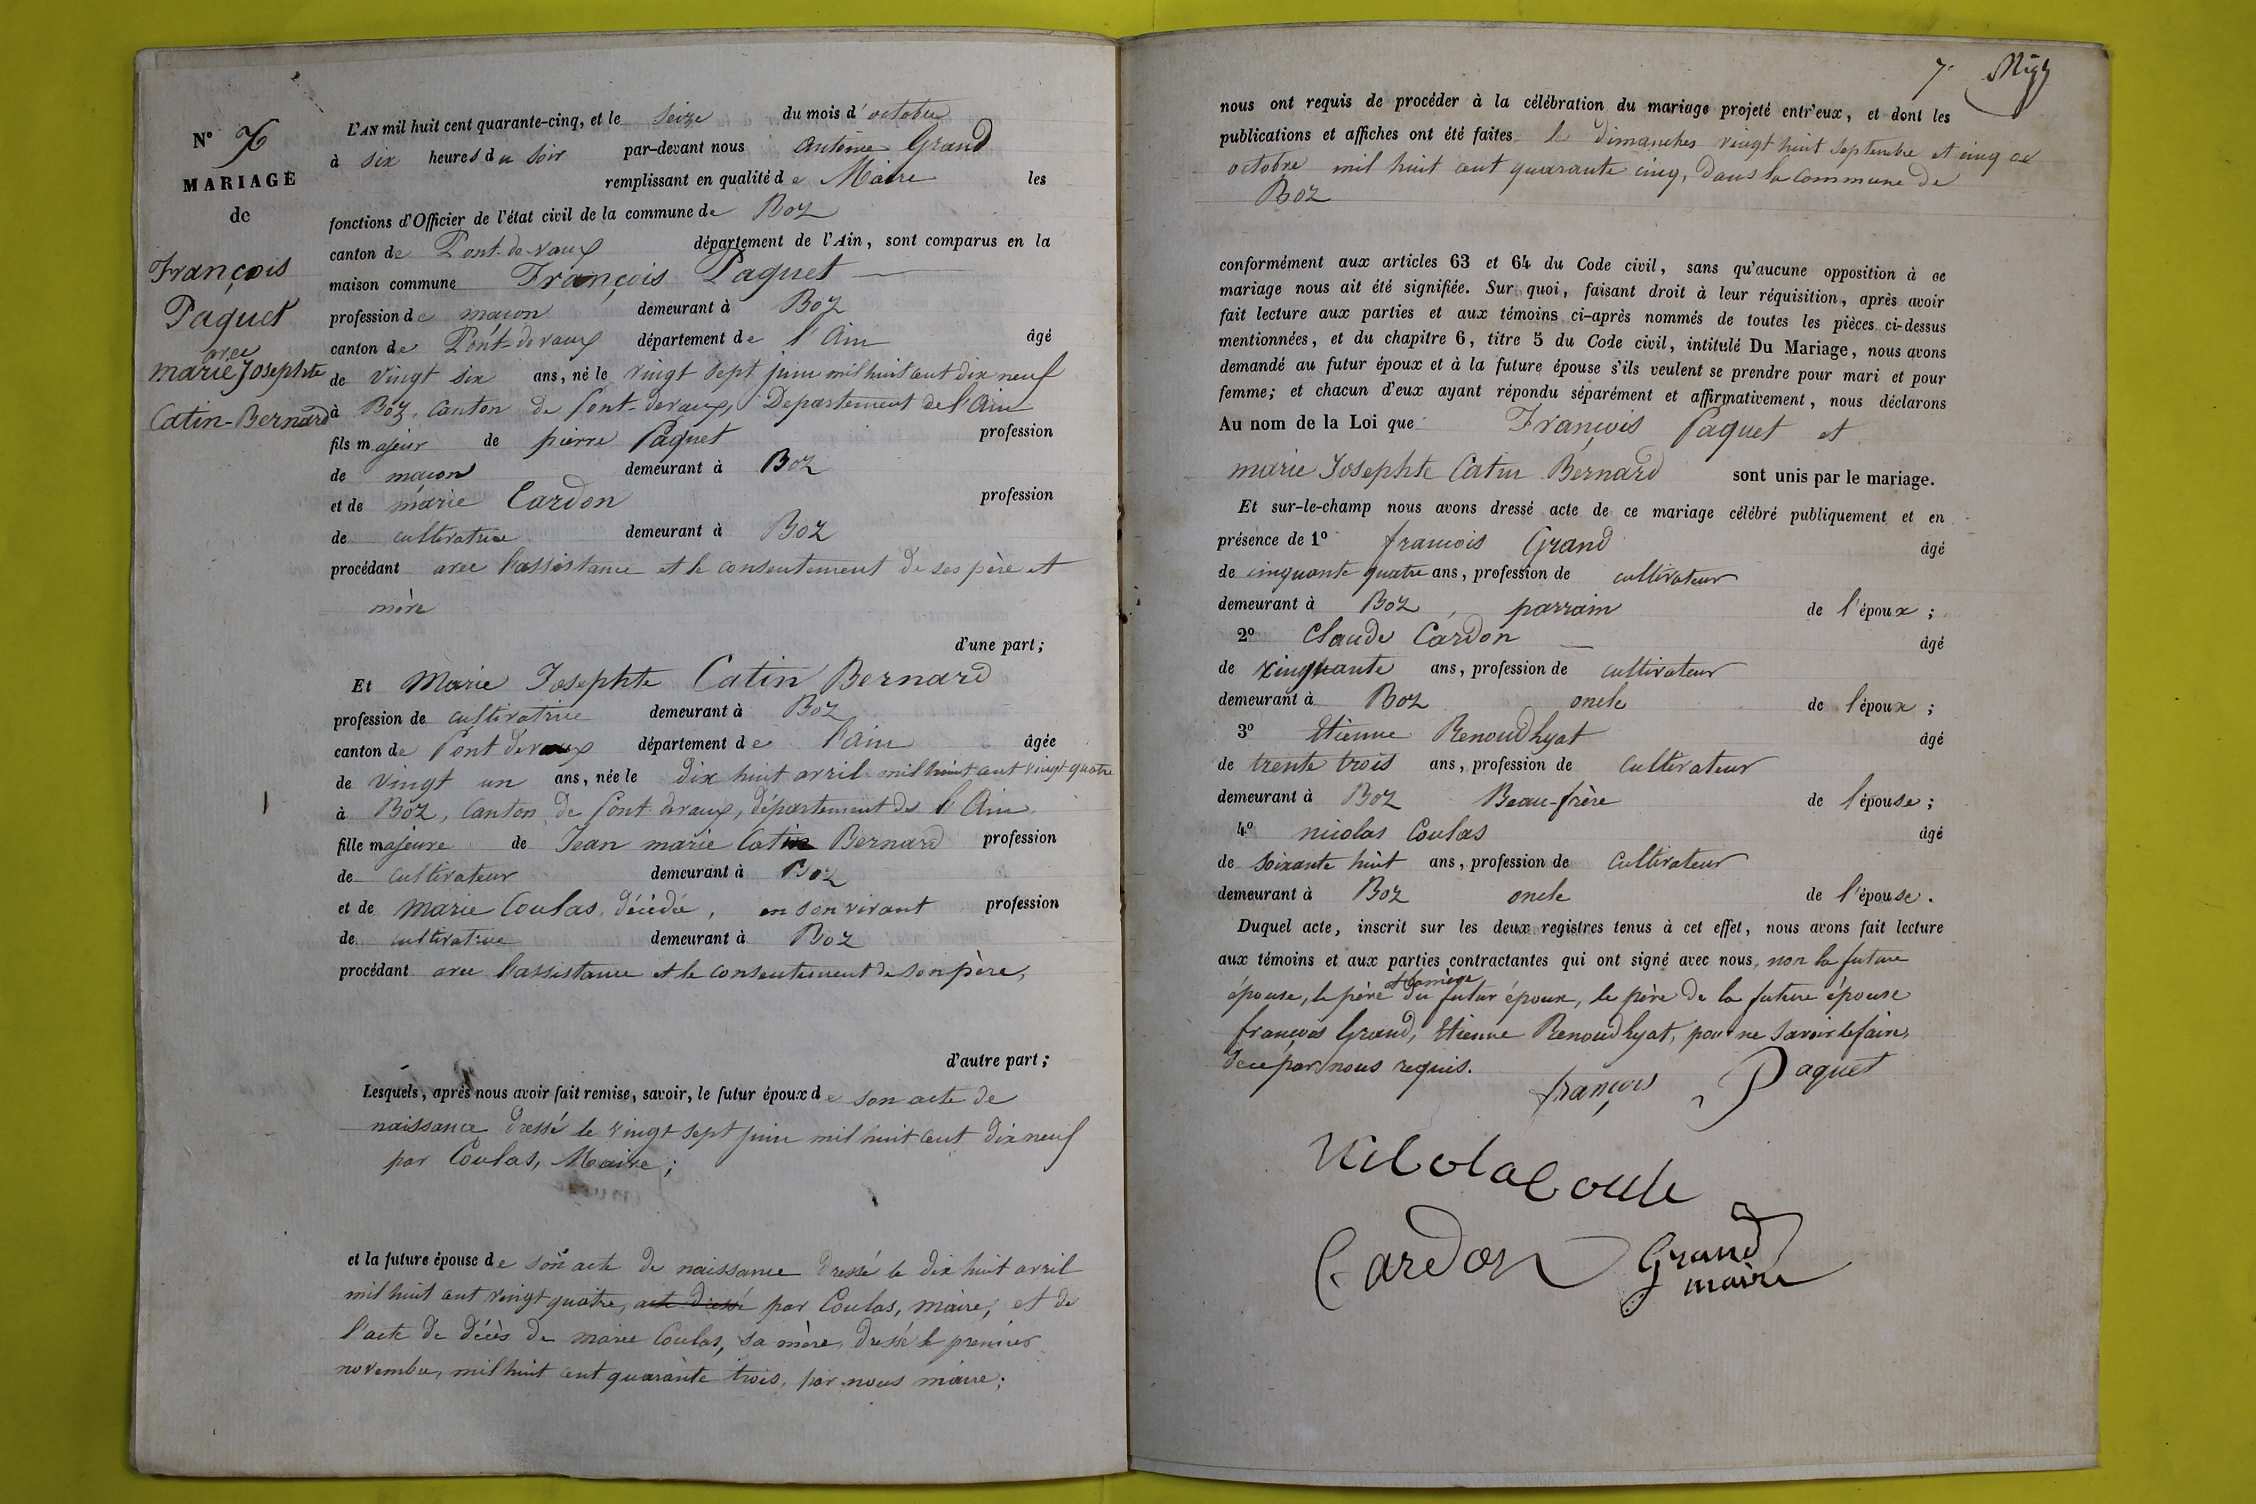 N° 7
MARIAGE
de
François
Paquet
avec
marie Josephte
Catin-Bernard
L'AN mil huit cent quarante-cinq, et le seize du mois d'octobre
à six heures du soir par-devant nous antoine Grand
remplissant en qualité de Maire les
fonctions d'Officier de l'état civil de la commune de Boz
canton de Pont-de-vaux département de l'Ain, sont comparus en la
maison commune François Paquet
profession de maçon demeurant à Boz
canton de Pont-de vaux département de l'Ain âgé
de vingt six ans, né le vingt sept juin mil huit cent dix neuf
à Boz, canton de Pont-devaux, Departement de l'Ain
fils majeur de pierre Paquet profession
de maçon demeurant à Boz
et de marie Cardon profession
de cultivatrice demeurant à Boz
procédant avec l'assistance et le consentement de ses père et
mère
d'une part;
Et Marie Josephte Catin Bernard
profession de cultivatrice demeurant à Boz
canton de Pont devaux département de l'ain âgée
de vingt un ans, née le dix huit avril mil huit cent vingt quatre
à Boz, canton de Pont devaux, département de l'Ain
fille majeure de Jean marie Catin Bernard profession
de cultivateur demeurant à Boz
et de Marie Coulas, décédée, en son vivant profession
de cultivatrice demeurant à Boz
procédant avec l'assistance et le consentement de son père,
d'autre part;
Lesquels, après nous avoir fait remise, savoir, le futur époux de son acte de
naissance dressé le vingt sept juin mil huit cent dix neuf
par Coulas, Maire;
et la future épouse de son acte de naissance dressé le dix huit avril
mil huit cent vingt quatre, acte dressé par Coulas, maire; et de
l'acte de décès de marie Coulas, sa mère, dressé le premier
novembre, mil huit cent quarante trois, par nous maire;
7.
nous ont requis de procéder à la célébration du mariage projeté entr'eux, et dont les
publications et affiches ont été faites le dimanches vingt huit septembre et cinq
octobre mil huit cent quarante cinq, dans la commune de
Boz
conformément aux articles 63 et 64 du Code civil, sans qu'aucune opposition à ce
mariage nous ait été signifiée. Sur quoi, faisant droit à leur réquisition, après avoir
fait lecture aux parties et aux témoins ci-après nommés de toutes les pièces ci-dessus
mentionnées, et du chapitre 6, titre 5 du Code civil, intitulé Du Mariage, nous avons
demandé au futur époux et à la future épouse s'ils veulent se prendre pour mari et pour
femme; et chacun d'eux ayant répondu séparément et affirmativement, nous déclarons
Au nom de la Loi que François Paquet et
marie Josephte Catin Bernard sont unis par le mariage.
Et sur-le-champ nous avons dressé acte de ce mariage célébré publiquement et en
présence de 1° francois Grand âgé
de cinquante quatre ans, profession de cultivateur
demeurant à Boz, parrain de l'époux;
2° Claude Cardon âgé
de cinquante ans, profession de cultivateur
demeurant à Boz oncle de l'époux;
3° Etienne Renoud lyat âgé
de trente trois ans, profession de cultivateur
demeurant à Boz Beau-frère de l'épouse;
4° nicolas Coulas âgé
de soixante huit ans, profession de cultivateur
demeurant à Boz oncle de l'épouse.
Duquel acte, inscrit sur les deux registres tenus à cet effet, nous avons fait lecture
aux témoins et aux parties contractantes qui ont signé avec nous, non la future
épouse, le père et la mère du futur époux, le père de la future épouse
françois Grand, Etienne Renoud lyat, pour ne savoir le faire,
de ce par nous requis.
françois Paquet
Nicola Coula
Cardon
Grand
maire